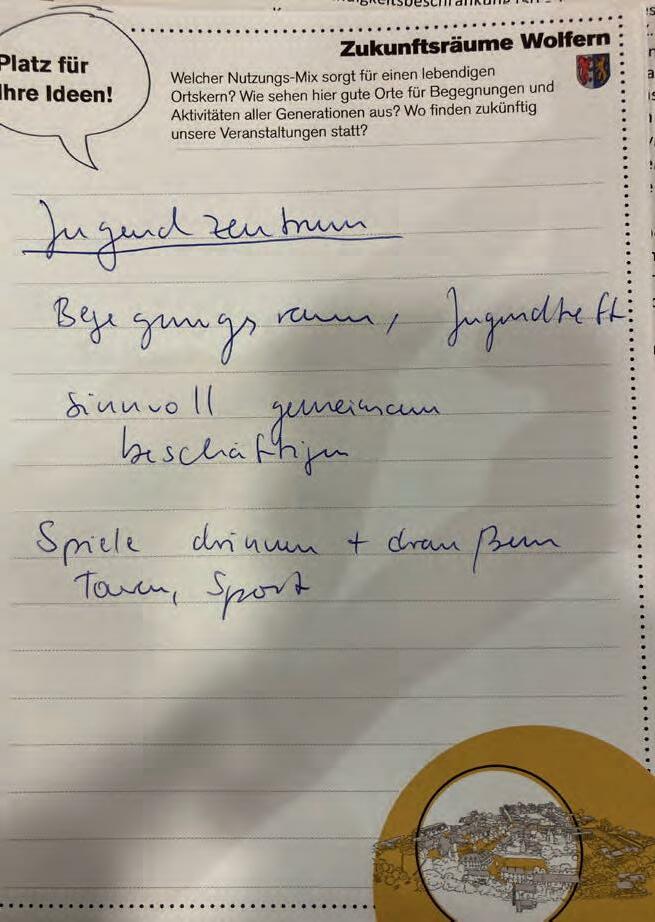 Platz für
Ihre Ideen!
Zukunftsräume Wolfern
Welcher Nutzungs-Mix sorgt für einen lebendigen
Ortskern? Wie sehen hier gute Orte für Begegnungen und
Aktivitäten aller Generationen aus? Wo finden zukünftig
unsere Veranstaltungen statt?
Jugendzentrum
Begegungsraum, Jugendtreff
sinnvoll gemeinsam
beschäftigen
Spiele drinnen + draußen
Sport